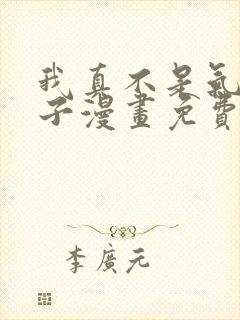 我真不是氣
子漫畫免費
李廣元